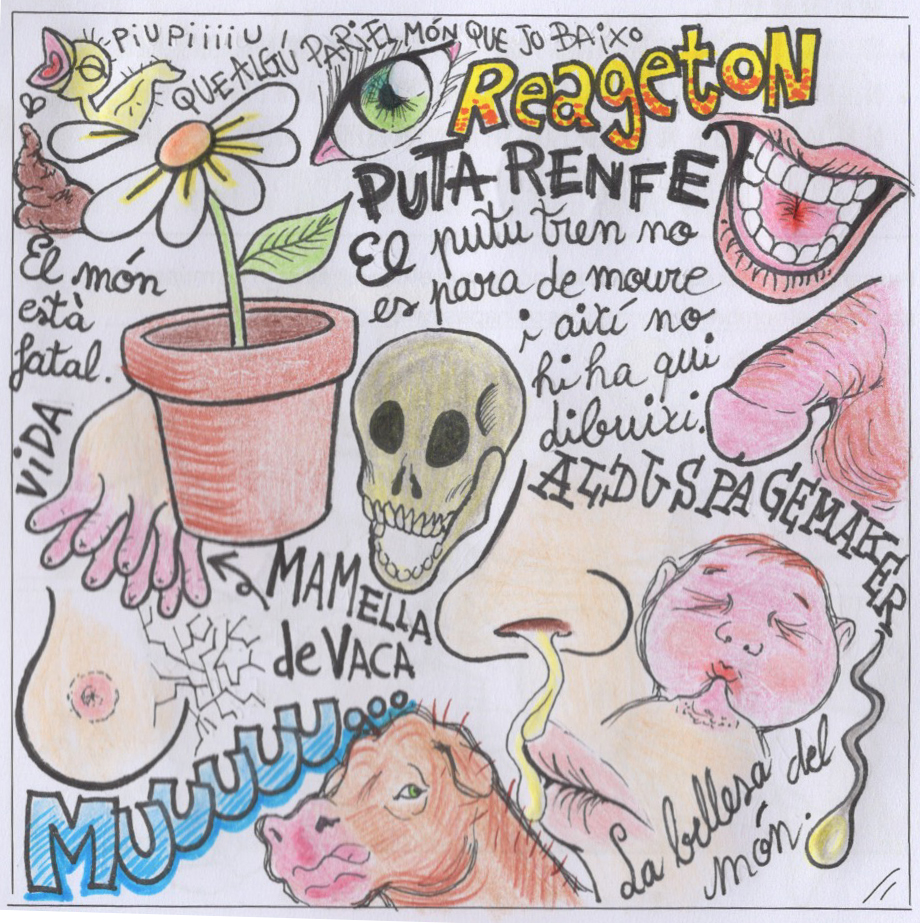 PiUPiiiiU
QUE ALGÚ PARi EL MÓN QUE JO BAiXO
ReagetoN
PUTA RENFE
El putu tren no
es para de moure
i així no
hi ha qui
dibuixi.
El món
està
fatal.
ViDA
ALDUS PAGEMAKER
MAMELLA
de VACA
MUUUUUU...
La bellesa del
món.